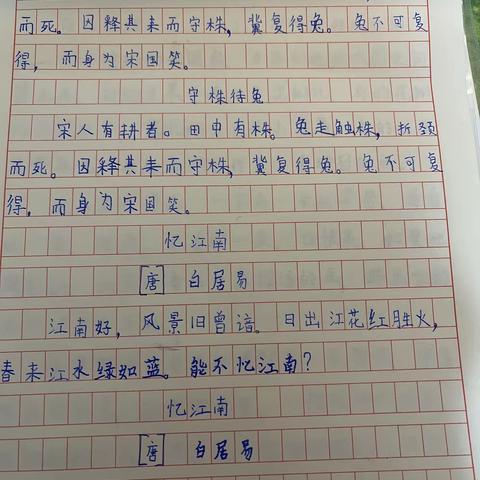 而死。因释其耒而守株，冀复得兔。兔不可复
得，而身为宋国笑。
守株待兔
宋人有耕者。田中有株。兔走触株，折颈
而死。因释其耒而守株，冀复得兔。兔不可复
得，而身为宋国笑。
忆江南
[唐] 白居易
江南好，风景旧曾谙。日出江花红胜火，
春来江水绿如蓝。能不忆江南？
忆江南
[唐] 白居易